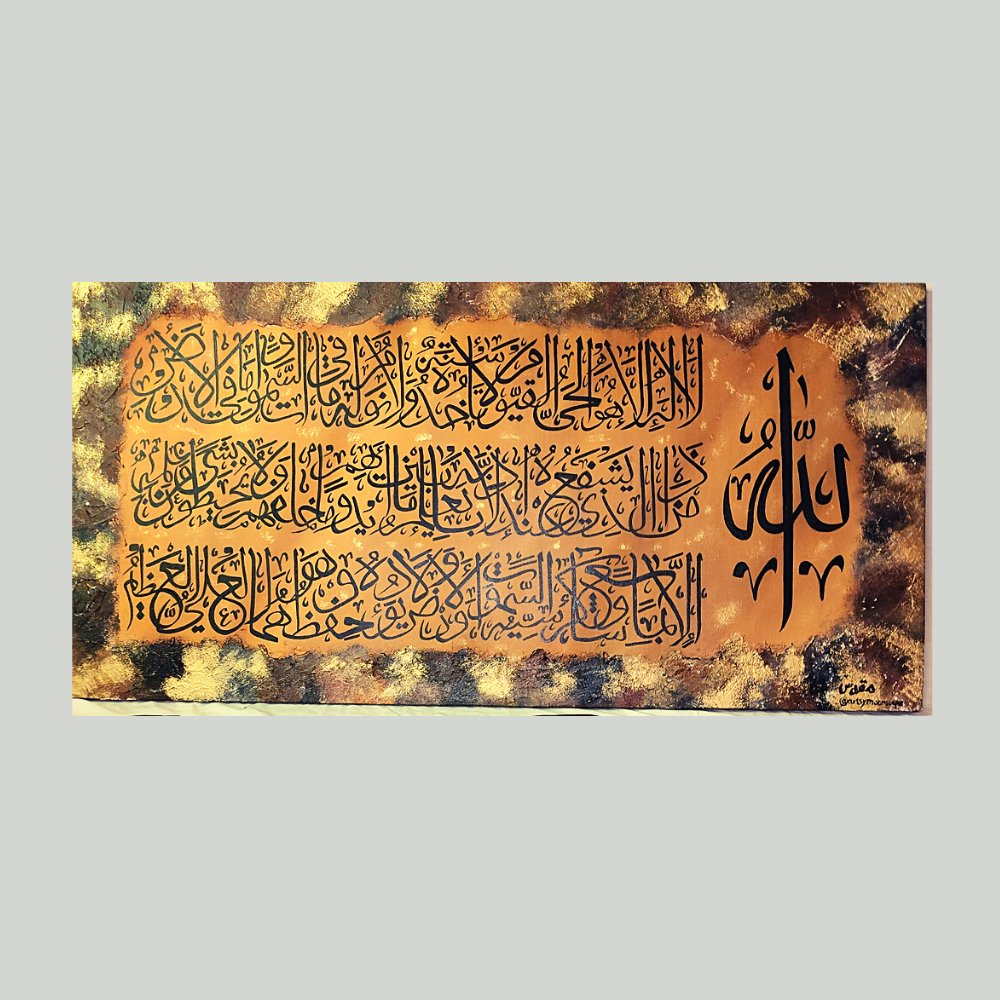 الله
لا إله إلا هو الحي القيوم لا تأخذه سنة ولا نوم له ما في السموات وما في الارض
من ذا الذي يشفع عنده إلا بإذنه يعلم ما بين أيديهم وما خلفهم ولا يحيطون بشيء من علمه
إلا بما شاء وسع كرسيه السموات والارض ولا يؤده حفظهما وهو العلي العظيم